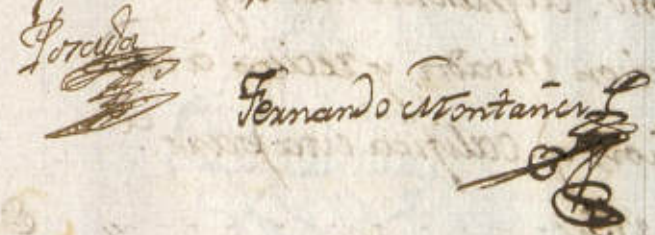 Posada
Fernando Montañer